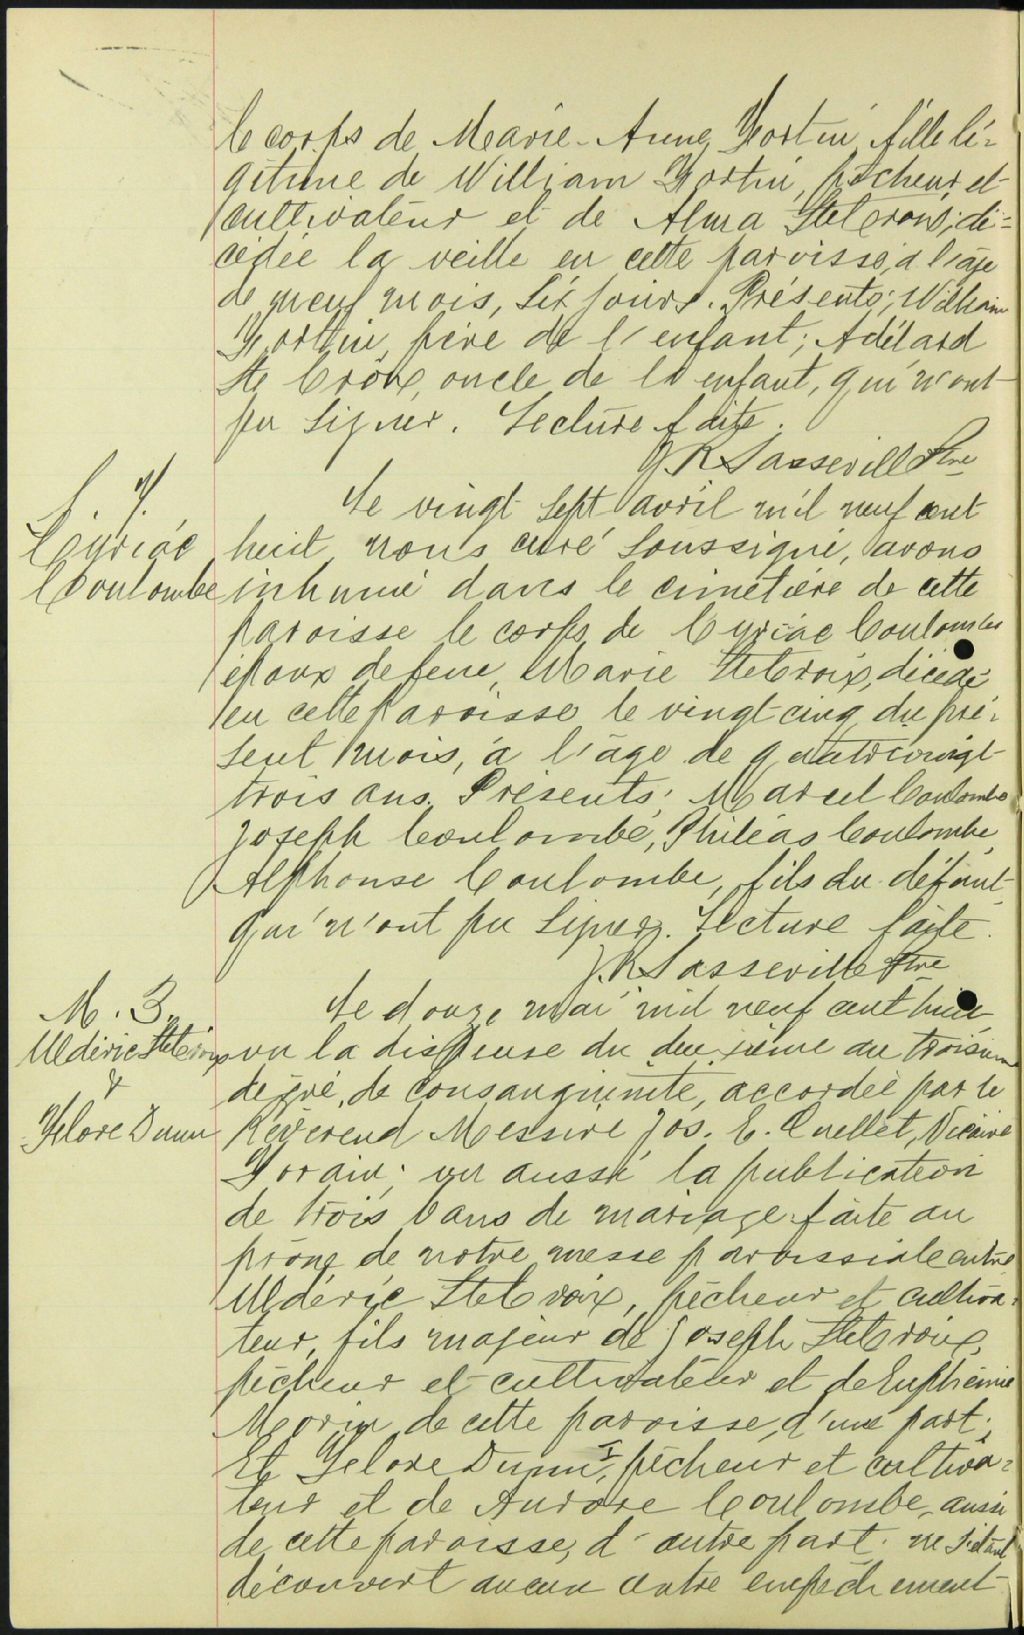 le corps de Marie-Anne Fortin, fille lé-
gitime de William Fortin, pêcheur et
cultivateur et de Alma SteCroix, dé-
cédée la veille en cette paroisse, à l'âge
de neuf mois, six jours. Présents; William
Fortin, père de l'enfant; Adélard
Ste Croix, oncle de l'enfant, qui n'ont
pu signer. Lecture faite.
J.R. Lasseville Ptre
S. 7.
Cyriac
Coulombe
Le vingt sept avril mil neuf cent
huit, nous curé soussigné, avons
inhumé dans le cimetière de cette
paroisse le corps de Cyriac Coulombe
époux de feue, Marie SteCroix, décédé
en cette paroisse le vingt-cinq du pré-
sent mois, à l'âge de quatrevingt
trois ans. Présents; Marcel Coulombe
Joseph Coulombe, Philéas Coulombe,
Alphonse Coulombe, fils du défunt
qui n'ont pu signer. Lecture faite.
J.R. Lasseville Ptre
M. 3.
Uldéric SteCroix
&
Flore Dunn
Le douze mai mil neuf cent huit
vu la dispense du deuxième au troisième
dégré, de consanguinité, accordée par le
Révérend Messire Jos. E. Ouellet, Vicaire
Forain; vu aussi la publication
de trois bans de mariage faite au
prône de notre messe paroissiale entre
Uldéric SteCroix, pêcheur et cultiva-
teur, fils majeur de Joseph SteCroix,
pêcheur et cultivateur et de Euphémie
Morin de cette paroisse, d'une part;
Et Flore Dunn I, pêcheur et cultiva-
teur et de Aurore Coulombe, aussi
de cette paroisse, d'autre part. ne s'étant
découvert aucun autre empêchement